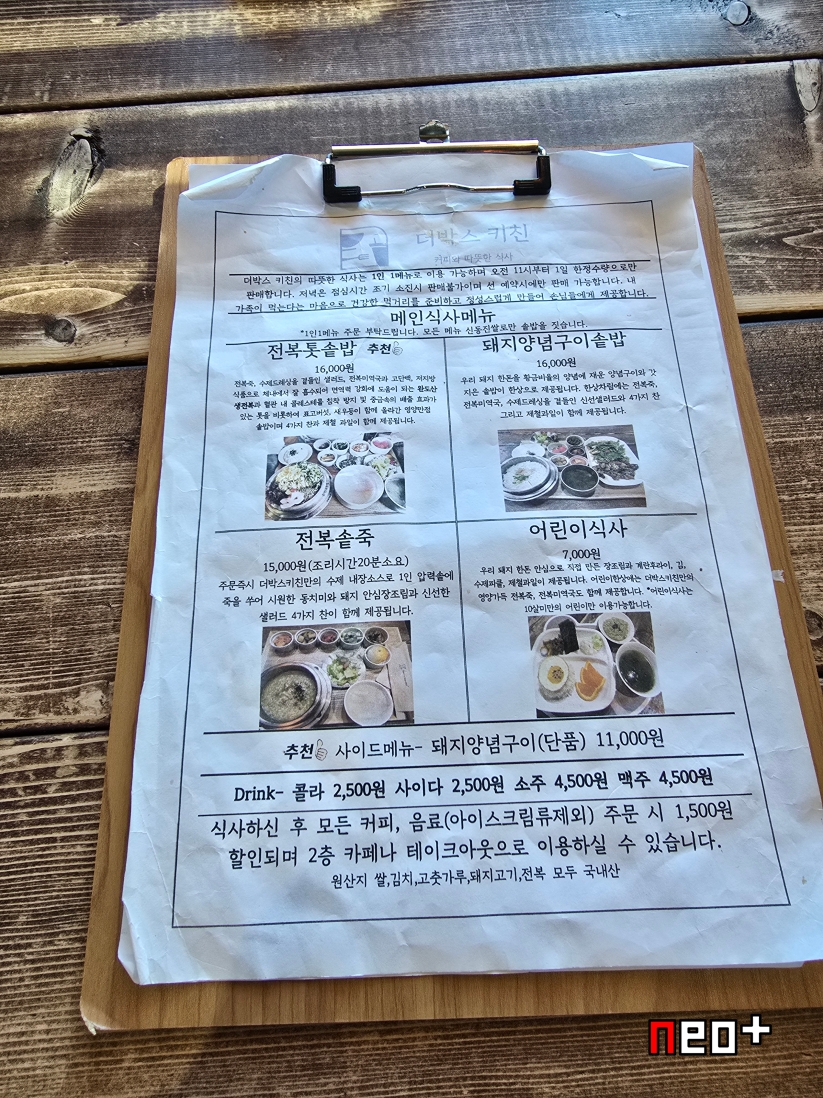 더박스 키친
커피와 따뜻한 식사
더박스 키친의 따뜻한 식사는 1인 1메뉴로 이용 가능하며 오전 11시부터 1일 한정수량으로만
판매합니다. 저녁은 점심시간 조기 소진시 판매불가이며 선 예약시에만 판매 가능합니다. 내
가족이 먹는다는 마음으로 건강한 먹거리를 준비하고 정성스럽게 만들어 손님들에게 제공합니다.
메인식사메뉴
*1인1메뉴 주문 부탁드립니다. 모든 메뉴 신동진쌀로만 솥밥을 짓습니다.
전복톳솥밥 추천
16,000원
전복죽, 수제드레싱을 곁들인 샐러드, 전복미역국과 고단백, 저지방
식품으로 체내에서 잘 흡수되어 면역력 강화에 도움이 되는 완도산
생전복과 혈관 내 콜레스테롤 침착 방지 및 중금속의 배출 효과가
있는 톳을 비롯하여 표고버섯, 새우등이 함께 올라간 영양만점
솥밥이며 4가지 찬과 제철 과일이 함께 제공됩니다.
돼지양념구이솥밥
16,000원
우리 돼지 한돈을 황금비들의 양념에 재운 양념구이와 갓
지은 솥밥이 한상으로 제공됩니다. 한상차림에는 전복죽,
전복미역국, 수제드레싱을 곁들인 신선샐러드와 4가지 찬
그리고 제철과일이 함께 제공됩니다.
전복솥죽
15,000원(조리시간20분소요)
주문즉시 더박스키친만의 수제 내장소스로 1인 압력솥에
죽을 쑤어 시원한 동치미와 돼지 안심장조림과 신선한
샐러드 4가지 찬이 함께 제공됩니다.
어린이식사
7,000원
우리 돼지 한돈 안심으로 직접 만든 장조림과 계란후라이, 김,
수제피클, 제철과일이 제공됩니다. 어린이한상에는 더박스키친만의
영양가득 전복죽, 전복미역국도 함께 제공합니다. *어린이식사는
10살미만의 어린이만 이용가능합니다.
추천 사이드메뉴- 돼지양념구이(단품) 11,000원
Drink- 콜라 2,500원 사이다 2,500원 소주 4,500원 맥주 4,500원
식사하신 후 모든 커피, 음료(아이스크림류제외) 주문 시 1,500원
할인되며 2층 카페나 테이크아웃으로 이용하실 수 있습니다.
원산지 쌀,김치,고춧가루,돼지고기,전복 모두 국내산
neo+